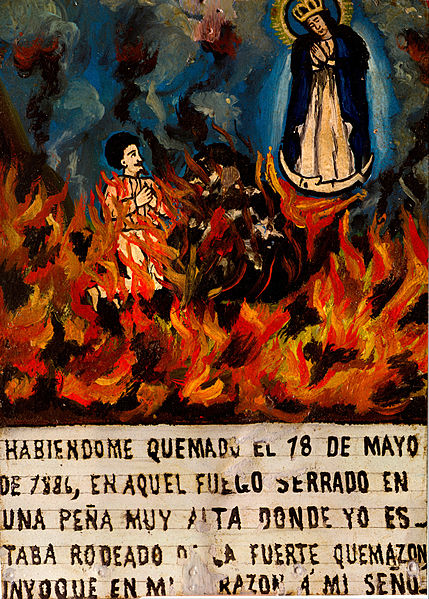 HABIENDOME QUEMADO EL 18 DE MAYO
DE 1886, EN AQUEL FUEGO SERRADO EN
UNA PEÑA MUY ALTA DONDE YO ES-
TABA RODEADO LA FUERTE QUEMAZON,
INVOQUE EN MI RAZON A MI SEÑO-